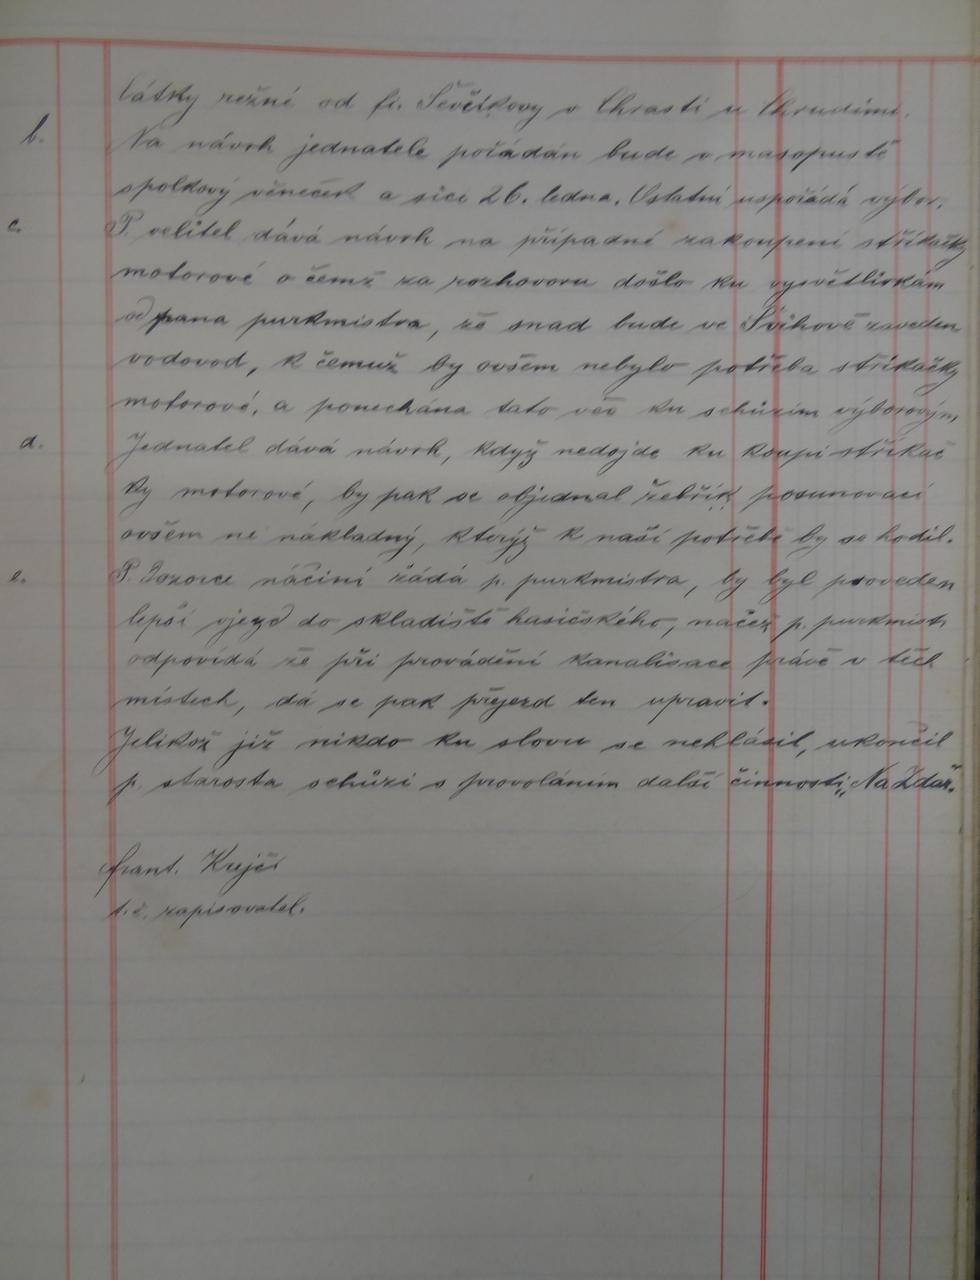 látky režné od fi. Ševčíkovy v Chrasti u Chrudimi.
b. Na návrh jednatele pořádán bude v masopustě
spolkový věneček a sice 26. ledna. Ostatní uspořádá výbor.
c. P. velitel dává návrh na případné zakoupení stříkačky
motorové o čemž za rozhovoru došlo ku vysvětlivkám
od pana purkmistra, že snad bude ve Švihově zaveden
vodovod, k čemuž by ovšem nebylo potřeba stříkačky
motorové, a ponechána tato věc ku schůzím výborovým
d. Jednatel dává návrh, když nedojde ku koupi stříkač
ky motorové, by pak se objednal žebřík posunovací
ovšem ne nákladný, kterýž k naší potřebě by se hodil.
e. P. Dozorce náčiní žádá p. purkmistra, by byl proveden
lepší vjezd do skladiště hasičského, načež p. purkmistr
odpovídá že při provádění kanalisace právě v těch
místech, dá se pak přejezd ten upravit.
Jelikož již nikdo ku slovu se nehlásil, ukončil
p. starosta schůzi s provoláním další činnosti „Na Zdar."
Frant. Krejčí
t. č. zapisovatel.